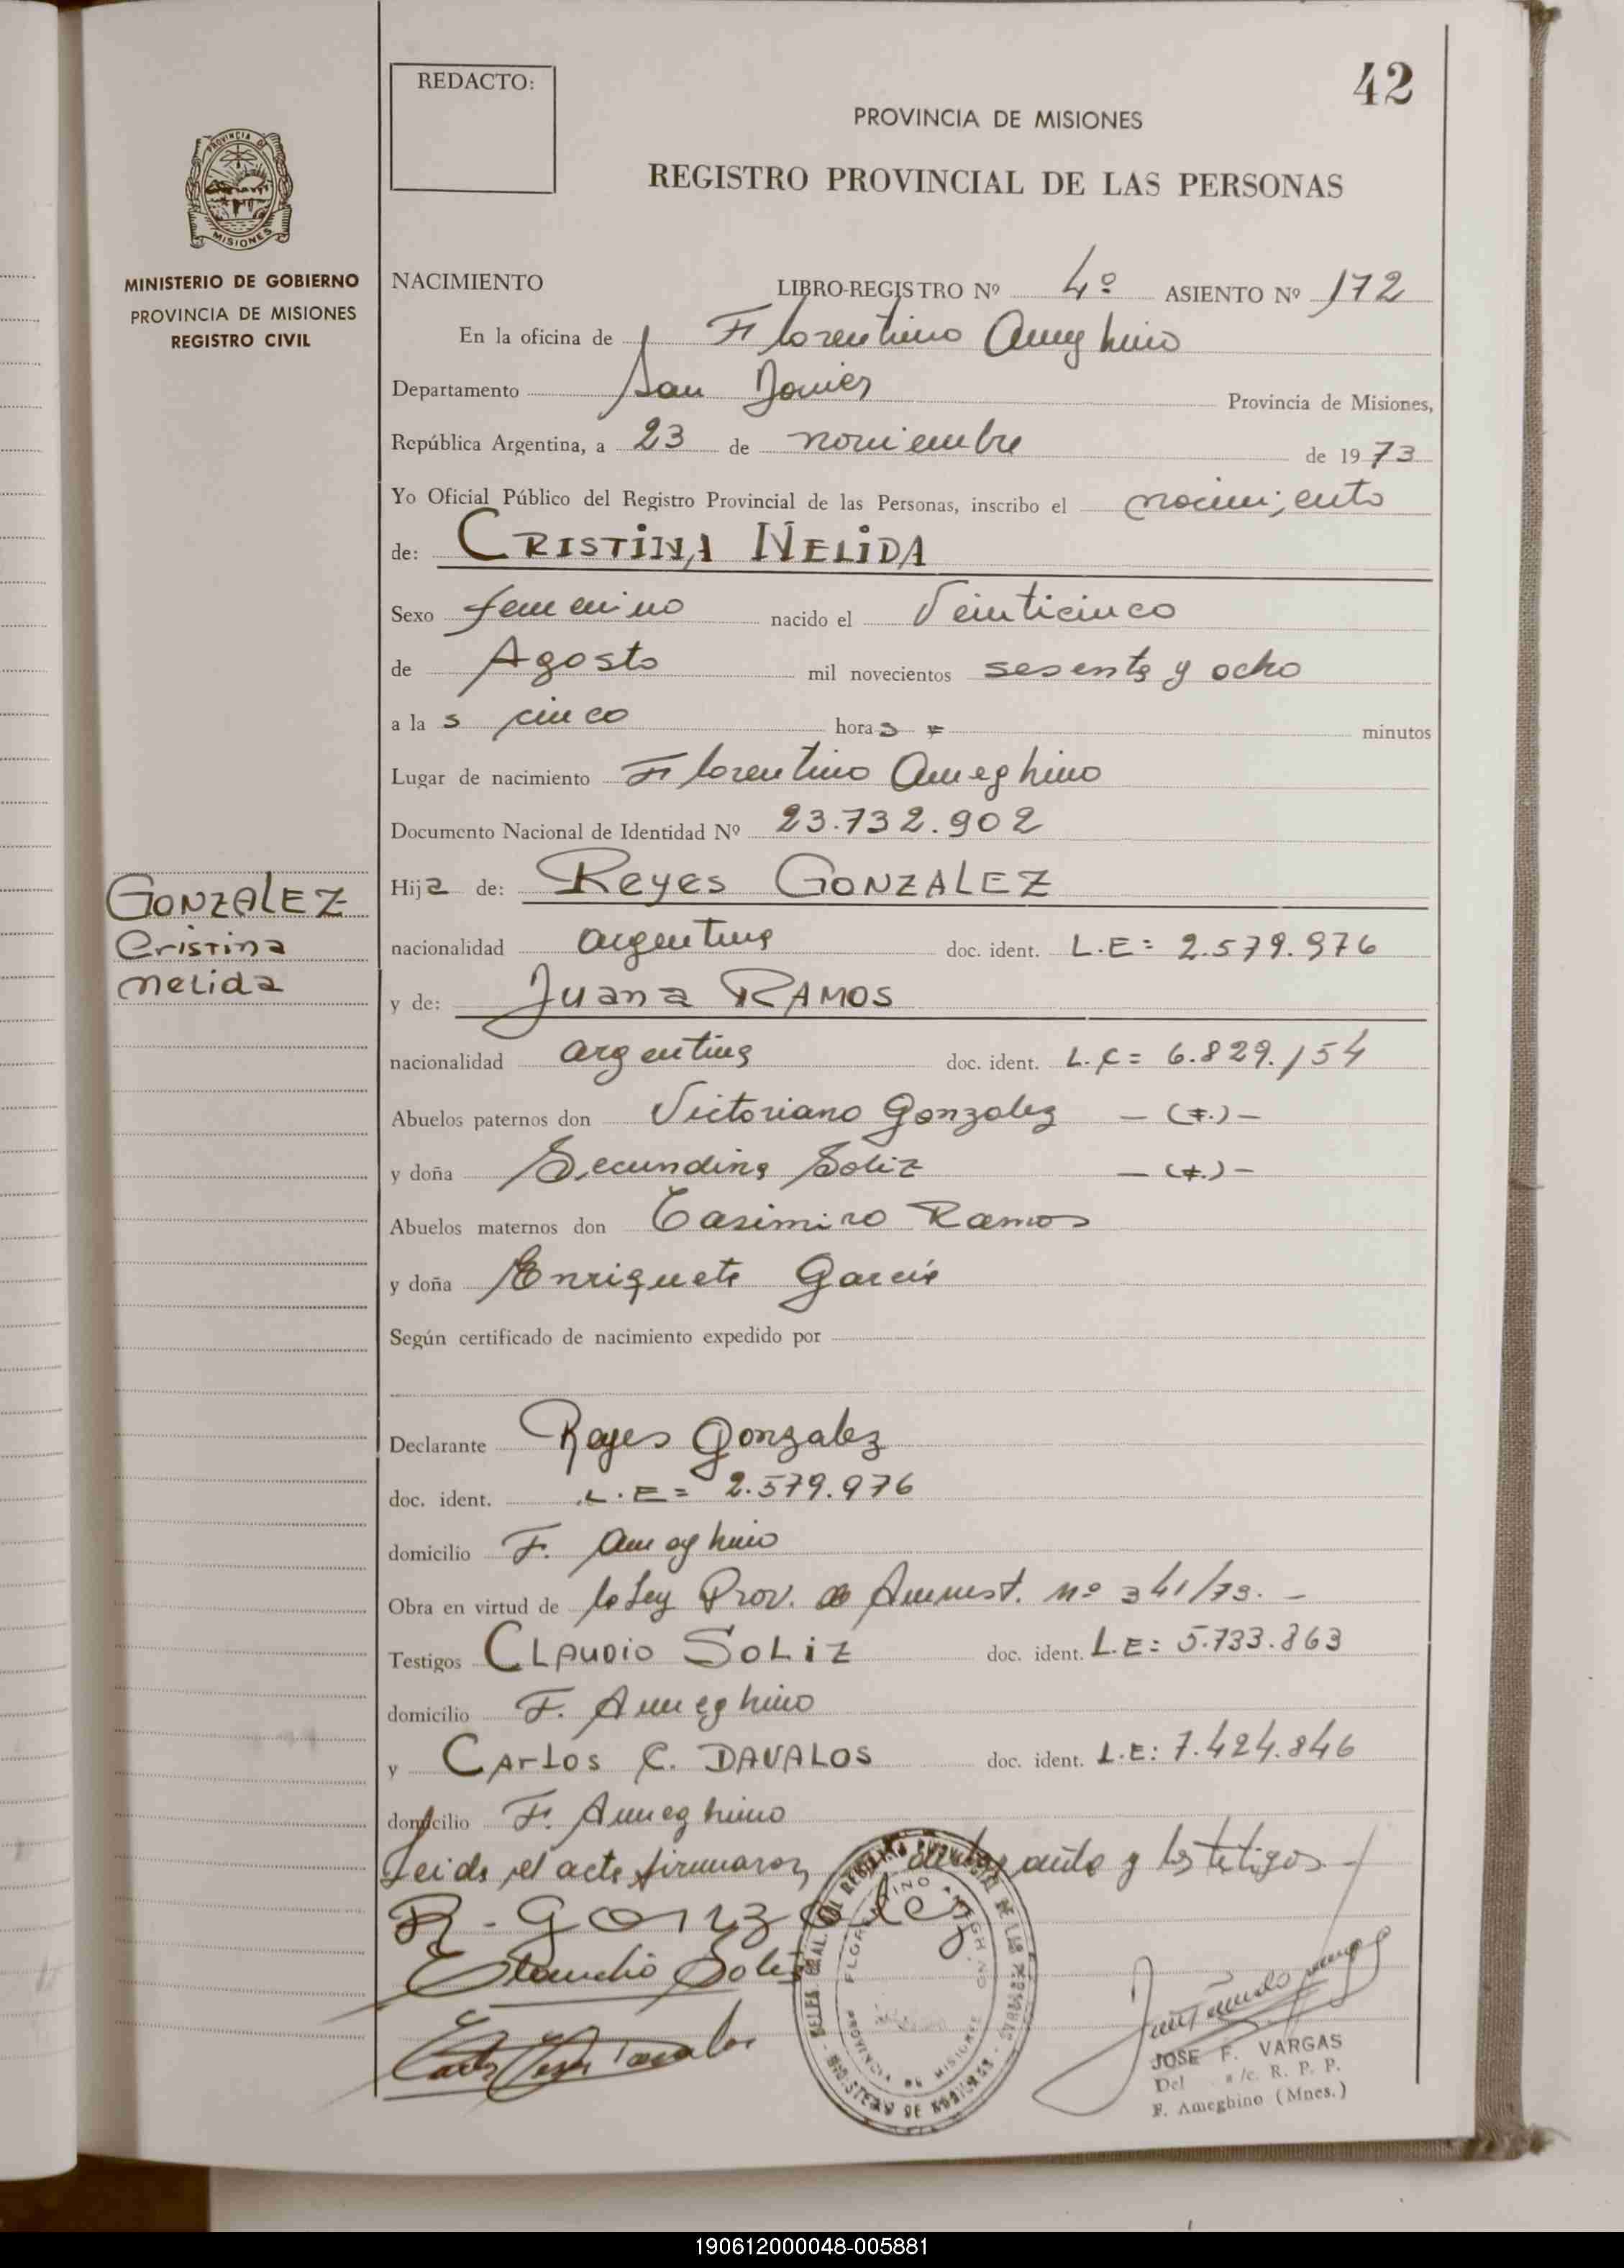 REDACTO:
42
PROVINCIA DE MISIONES
REGISTRO PROVINCIAL DE LAS PERSONAS
PROVINCIA DE
MISIONES
MINISTERIO DE GOBIERNO
PROVINCIA DE MISIONES
REGISTRO CIVIL
NACIMIENTO LIBRO-REGISTRO Nº 4º ASIENTO Nº 172
En la oficina de Florentino Ameghino
Departamento San Javier Provincia de Misiones,
República Argentina, a 23 de noviembre de 1973
Yo Oficial Público del Registro Provincial de las Personas, inscribo el nacimiento
de: CRISTINA NELIDA
Sexo femenino nacido el Veinticinco
de Agosto mil novecientos sesenta y ocho
a las cinco horas = minutos
Lugar de nacimiento Florentino Ameghino
Documento Nacional de Identidad Nº 23.732.902
Hija de: Reyes GONZALEZ
nacionalidad argentina doc. ident. L.E= 2.579.976
y de: Juana RAMOS
nacionalidad argentina doc. ident. L.C= 6.829.154
Abuelos paternos don Victoriano Gonzalez — (+.) —
y doña Secundina Soliz — (+.) —
Abuelos maternos don Casimiro Ramos
y doña Enriqueta Garcia
Según certificado de nacimiento expedido por
Declarante Reyes Gonzalez
doc. ident. L.E= 2.579.976
domicilio F. Ameghino
Obra en virtud de la Ley Prov. de Amnist. nº 341/73. —
Testigos CLAUDIO SOLIZ doc. ident. L.E: 5.733.863
domicilio F. Ameghino
y CARLOS C. DAVALOS doc. ident. L.E: 7.424.846
domicilio F. Ameghino
Leida el acta firmaron y los testigos. —
R. Gonzalez
Claudio Soliz
GONZALEZ
Cristina
Nelida
FLORENTINO AMEGHINO
PROVINCIA DE MISIONES
MINISTERIO DE GOBIERNO
JOSE F. VARGAS
Del a/c. R. P. P.
F. Ameghino (Mnes.)
190612000048-005881